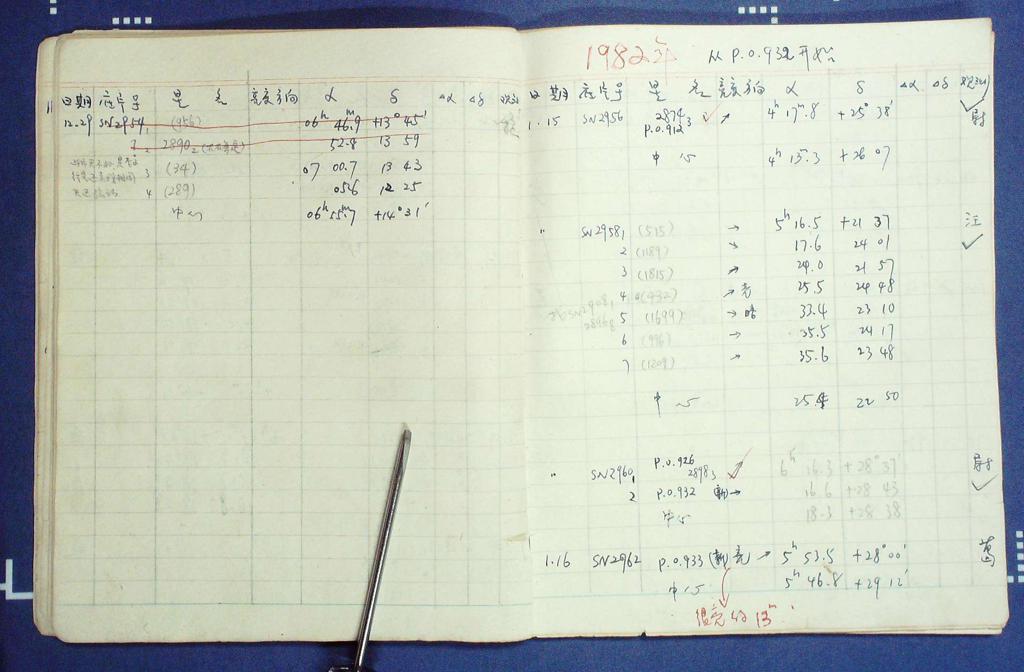 日期 底片号 星名 亮度方向 α δ Δα Δδ
12.29 SN2954₁ (956) 06ʰ 46.9ᵐ +13° 45′
2 2890₂ 52.8 13 59
3 (34) 07 00.7 13 43
4 (289) 05.6 12 25
中心 06ʰ 55.7ᵐ +14° 31′
1982年 从 P.O.932 开始
日期 底片号 星名 亮度方向 α δ Δα Δδ 观测
1.15 SN2956 2874₃ ↗ 4ʰ 17ᵐ.8 +25° 38′
P.O.912
中心 4ʰ 15ᵐ.3 +26 07
〃 SN2958₁ (515) → 5ʰ 16.5 +21 37 汪
2 (1189) 17.6 24 01 ✓
3 (1815) 24.0 21 57
4 (432) ↗亮 25.5 24 48
5 (1699) →暗 33.4 23 10
6 (996) → 35.5 24 17
7 (1209) 35.6 23 48
中心 25.4 22 50
〃 SN2960₁ P.O.926 2898₃ 6ʰ 16.3 +28° 37′
2 P.O.932 (新) → 16.6 +28 43
中心 18.3 +28 38
1.16 SN2962 P.O.933 (新) 亮 ↗ 5ʰ 53.5 +28° 00′ 葛
中心 5ʰ 46.8 +29 12′
很亮的 13ᵐ